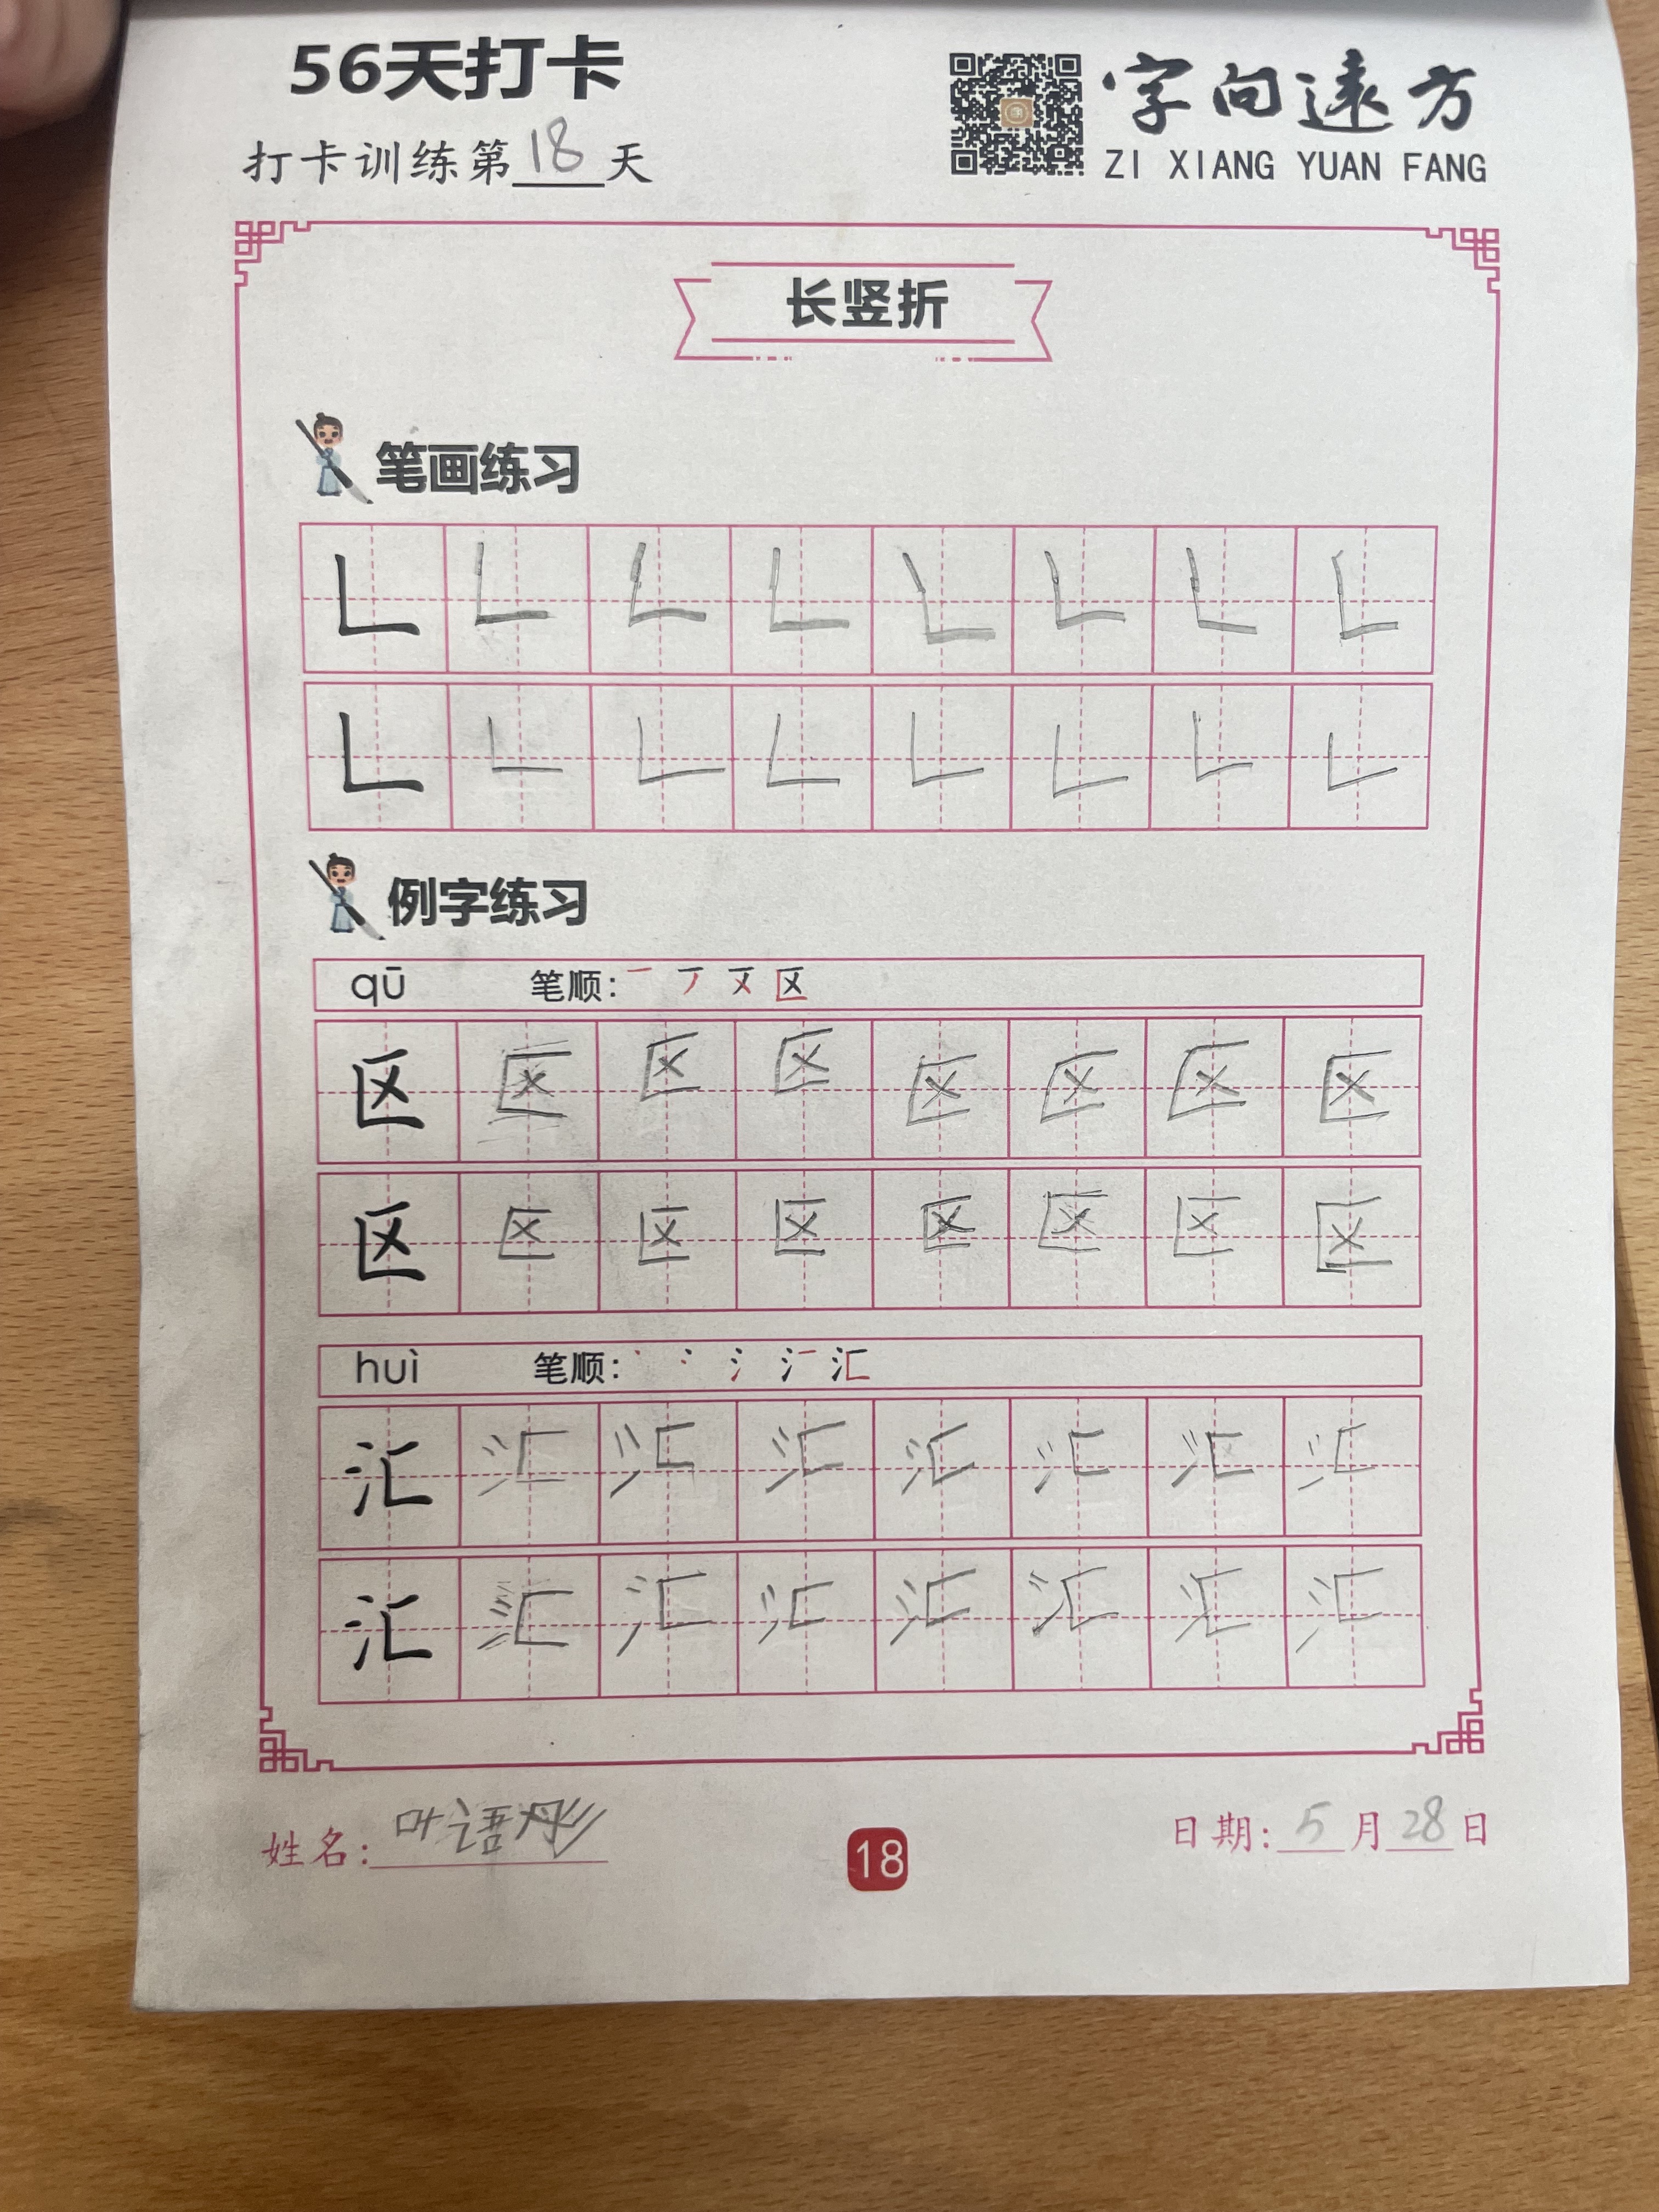 56天打卡
打卡训练第18天
字向远方
ZI XIANG YUAN FANG
长竖折
笔画练习
例字练习
qū 笔顺:
区 区 区 区 区 区 区 区
区 区 区 区 区 区 区 区
huì 笔顺:
汇 汇 汇 汇 汇 汇 汇 汇
汇 汇 汇 汇 汇 汇 汇 汇
姓名: 叶语彤
18
日期: 5月28日